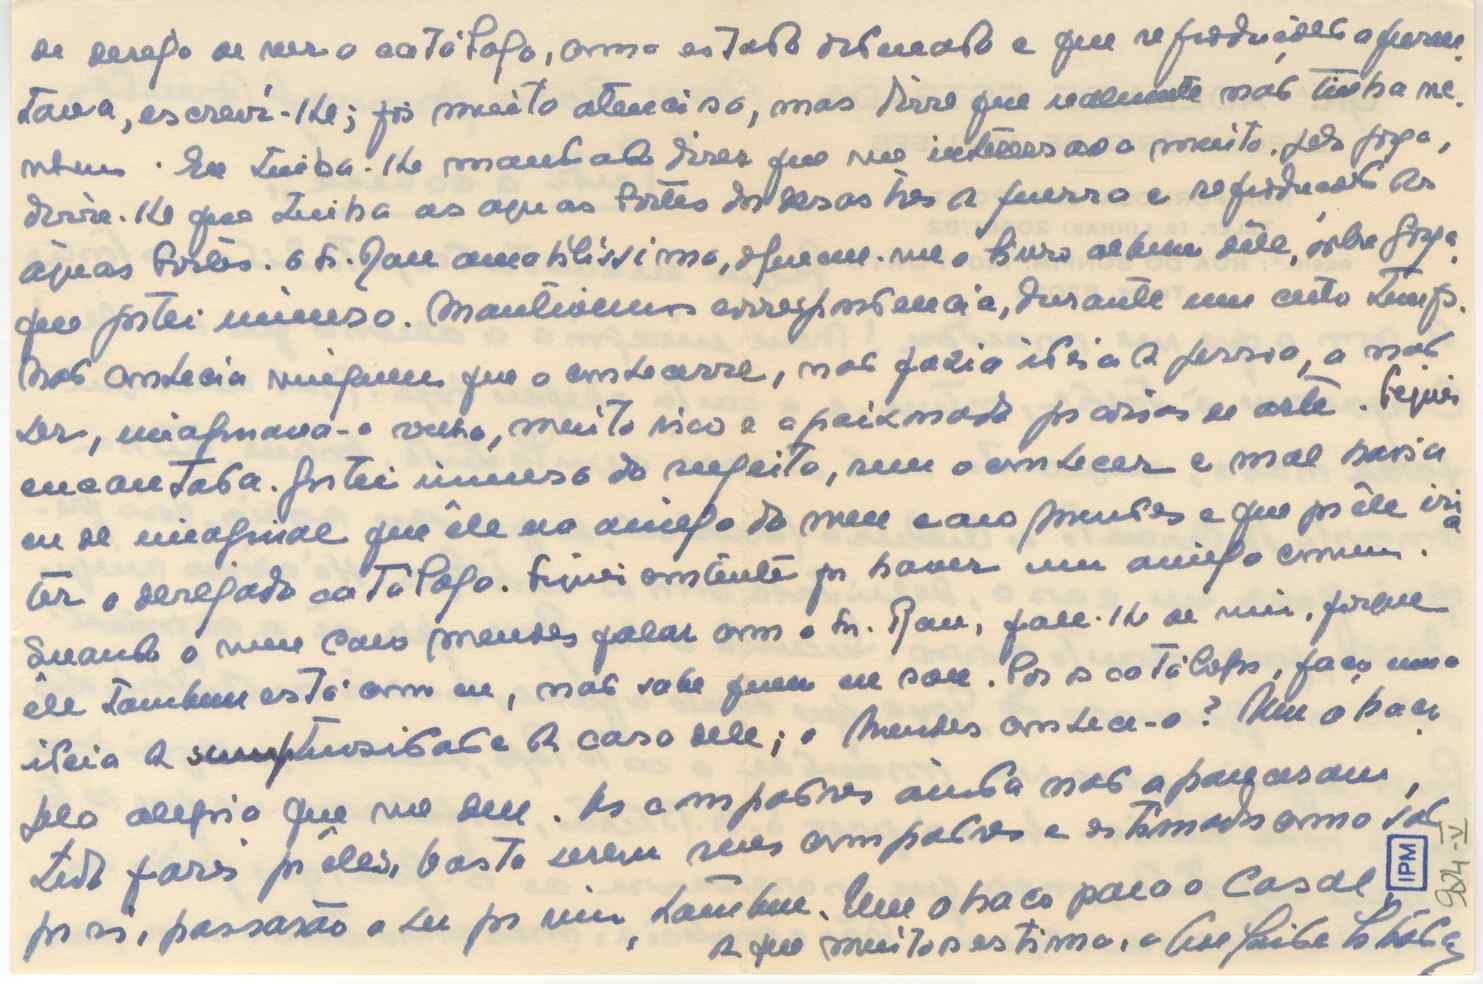 de desejo de ver o catálogo, como estado de
tava, escrevi-lhe; foi muito atencioso, mas disse que realmente não tinha ne-
nhum. Eu tinha-lhe mandado dizer que me interessava muito, pelo Goya,
disse-lhe que tinha as aguas fortes dos desastres da guerra e reproducões das
àguas fortes. O Sr. Rau amabilissimo, ofereceu-me o livro album dêle, sobre Goya,
que gostei imenso. Mantivemos correspondencia, durante um certo tempo.
Não conhecia ninguem que o conhecesse, não fazia ideia da pessoa, a não
ser, imaginava-o velho, muito rico e apaixonado por coisas de arte. Fiquei
encantada. Gostei imenso do sugeito, sem o conhecer e mal havia
eu de imaginar que êle era amigo do meu caro Mendes e que por êle iria
ter o desejado catálogo. Fiquei contente por haver um amigo comum.
Quando o meu caro Mendes falar com o Sr. Rau, fale-lhe de mim, porque
êle tambem está como eu, não sabe quem eu sou. Por os catálogos, faço uma
ideia da sumptuosidade da casa dele; o Mendes conhece-o? Um abraço
pela alegria que me deu. Os compadres ainda não apareceram,
tudo farei por êles, basta serem seus compadres e estimados como são
por si, passarão a ser por mim, tambem. Um abraço para o Casal,
da que muito os estima, a
IPM